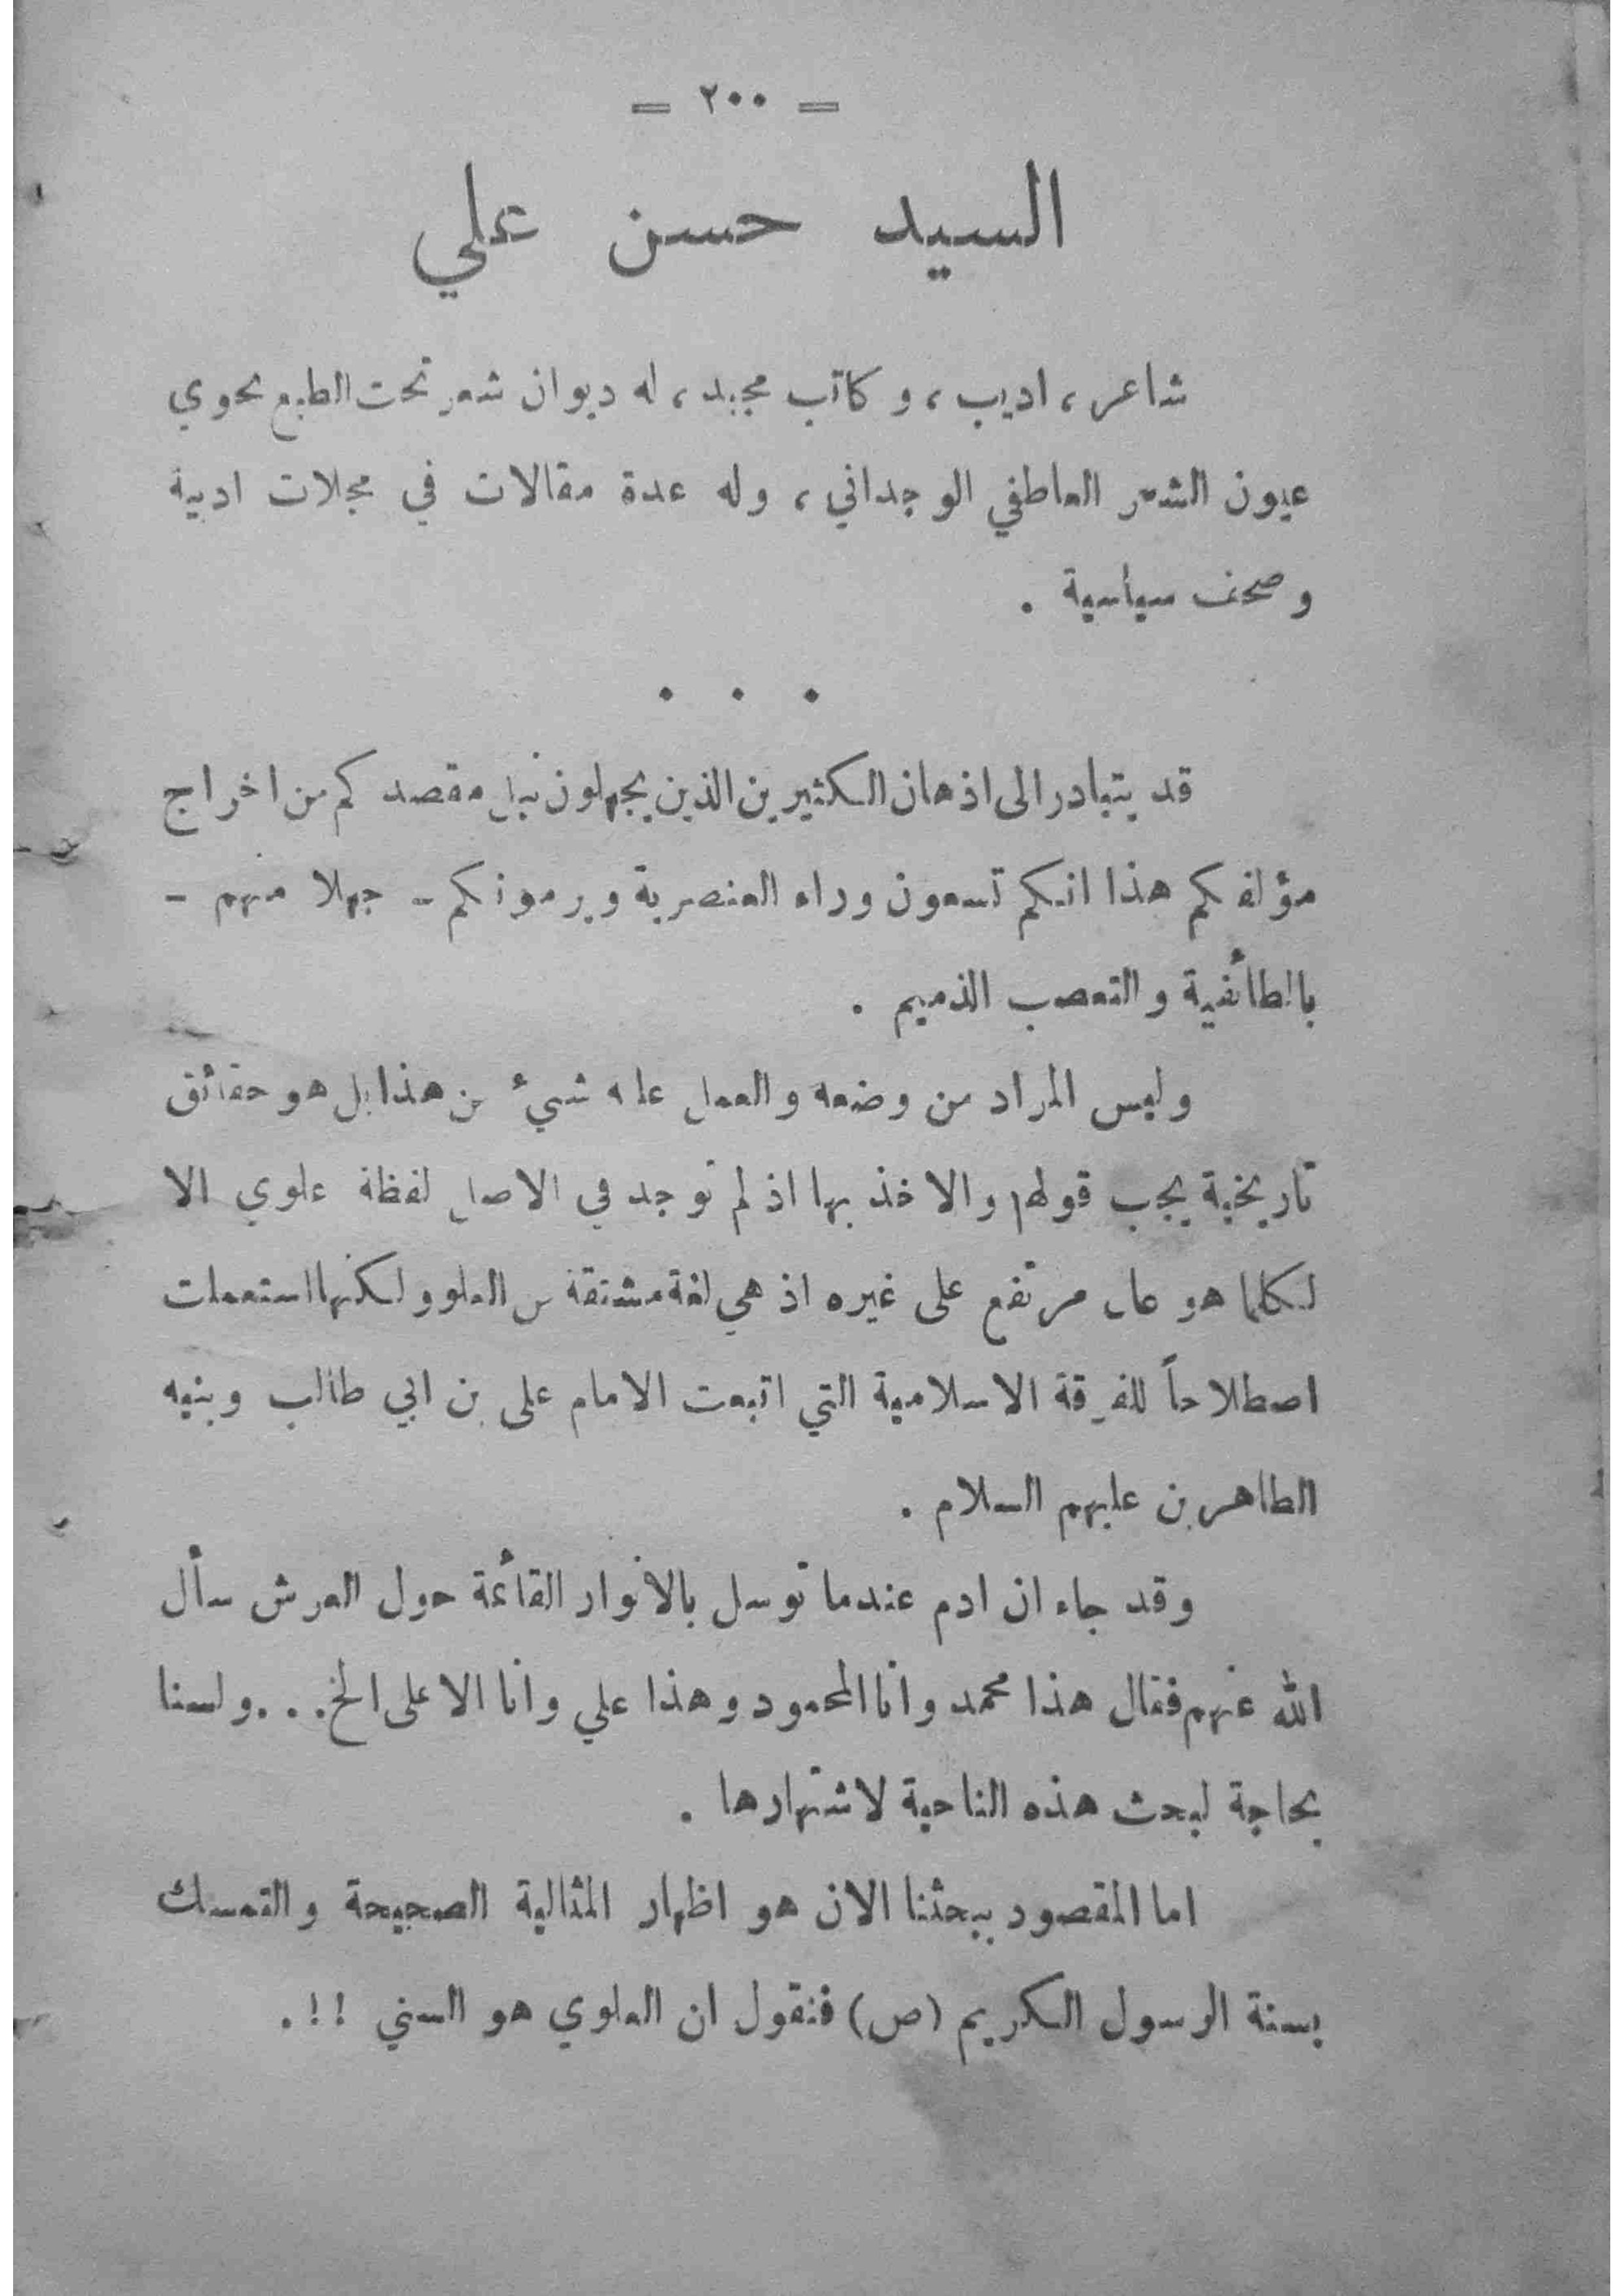 = ٢٠٠ =
السيد حسن علي
شاعر ، اديب ، و كاتب مجيد ، له ديوان شعر تحت الطبع يحوي
عيون الشعر العاطفي الوجداني ، وله عدة مقالات في مجلات ادبية
وصحف سياسية .
. . .
قد يتبادر الى اذهان الكثيرين الذين يجهلون نبل مقصدكم من اخراج
مؤلفكم هذا انكم تسعون وراء العنصرية ويرمونكم - جهلا منهم -
بالطائفية والتعصب الذميم .
وليس المراد من وضعه والعمل عليه شيء من هذا بل هو حقائق
تاريخية يجب قولها والاخذ بها اذ لم توجد في الاصل لفظة علوي الا
لكلما هو عال مرتفع على غيره اذ هي لغة مشتقة من العلو ولكنها استعملت
اصطلاحاً للفرقة الاسلامية التي اتبعت الامام علي بن ابي طالب وبنيه
الطاهرين عليهم السلام .
وقد جاء ان ادم عندما توسل بالانوار القائمة حول العرش سأل
الله عنهم فقال هذا محمد وانا المحمود وهذا علي وانا الاعلى الخ . . . ولسنا
بحاجة لبحث هذه الناحية لاشتهارها .
اما المقصود ببحثنا الان هو اظهار المثالية الصحيحة والتمسك
بسنة الرسول الكريم (ص) فنقول ان العلوي هو السني ! ! .